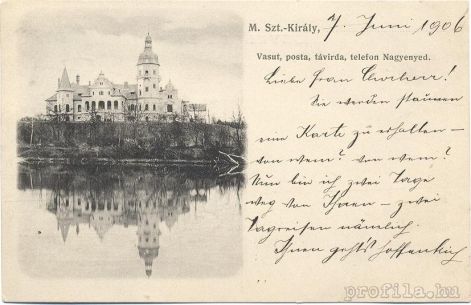 M. Szt.-Király, 7. Juni 1906
Vasut, posta, távirda, telefon Nagyenyed.
Liebe Frau !
Sie werden staunen
eine Karte zu erhalten —
von wem? von wem?
Nun bin ich zwei Tage
weg von Ihnen — zwei
Tagreisen nämlich.
Ihnen geht's hoffentlich
profila.hu